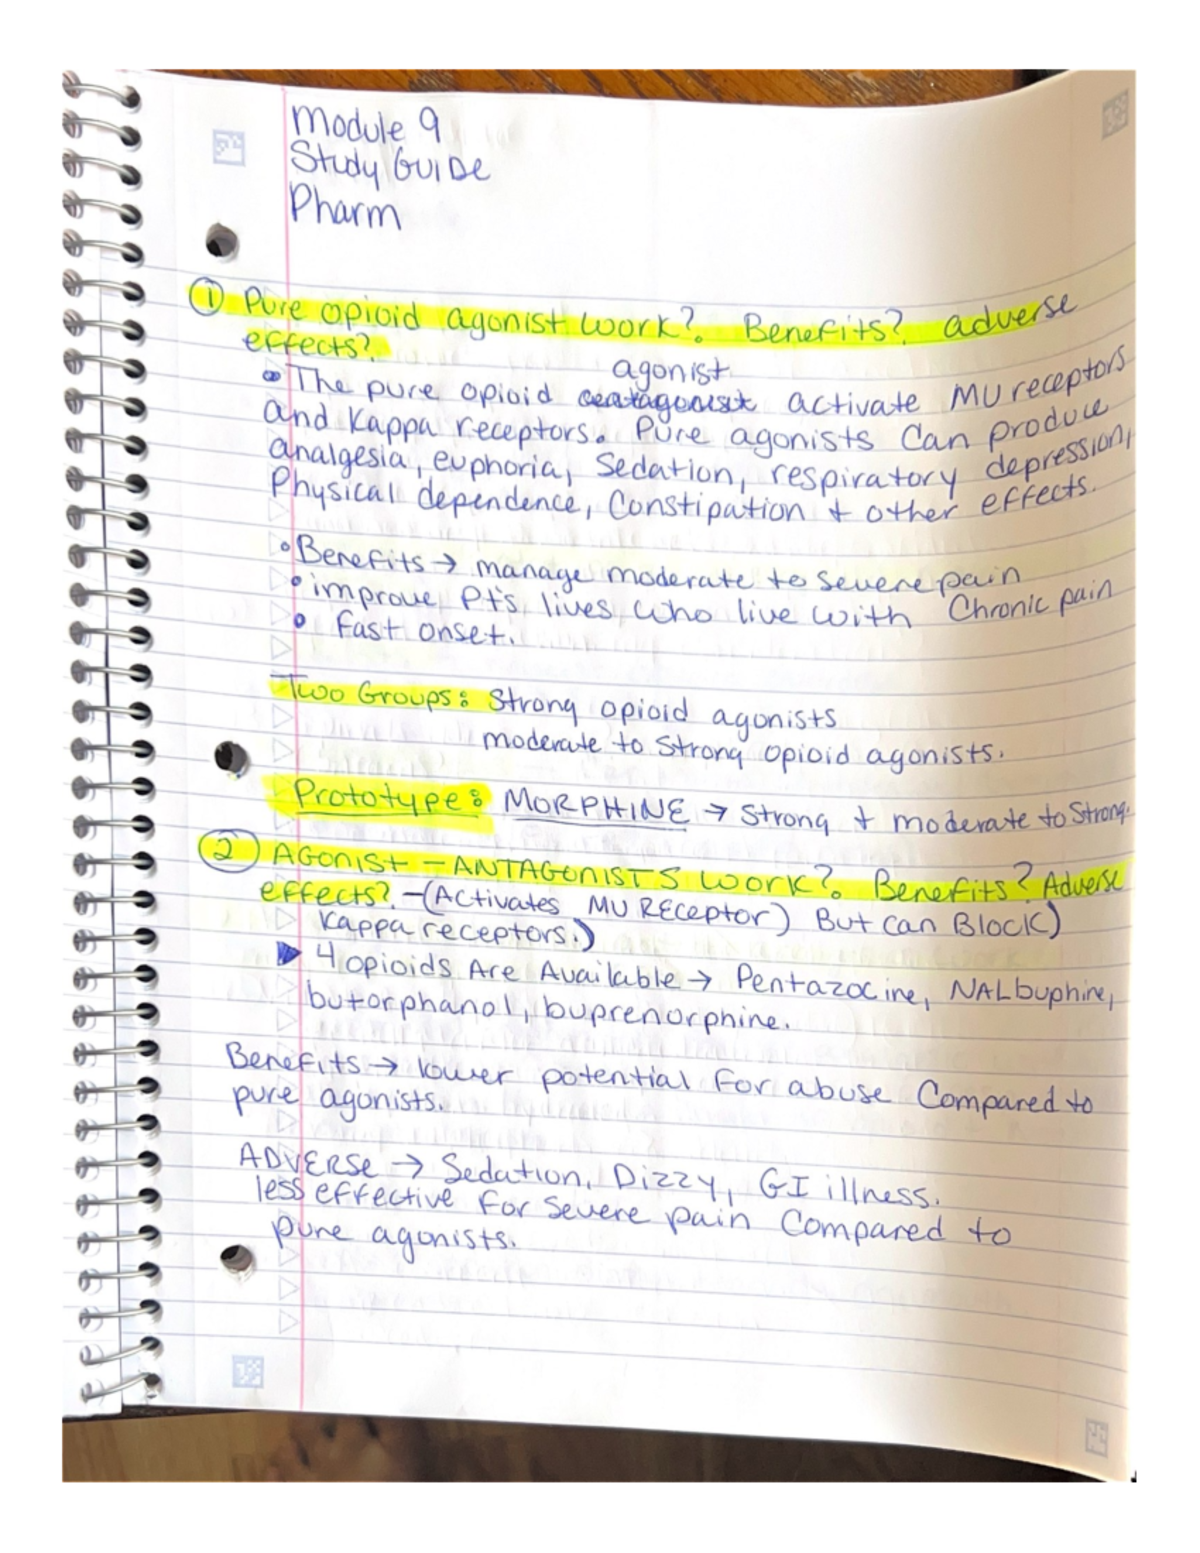 Module 9
Study GUIDe
Pharm
① Pure opioid agonist work? Benefits? adverse
effects?
agonist
• The pure opioid activate MU receptors
and Kappa receptors. Pure agonists Can produce
analgesia, euphoria, Sedation, respiratory depression,
Physical dependence, Constipation + other effects.
• Benefits → manage moderate to severe pain
• improve Pt's lives who live with Chronic pain
• fast onset.
Two Groups: Strong opioid agonists
moderate to Strong opioid agonists.
Prototype: MORPHINE → Strong + moderate to Strong.
② AGonist - ANTAGonISTS work? Benefits? Adverse
effects? -(Activates MU REceptor) But can Block)
Kappa receptors.)
▶ 4 opioids Are Available → Pentazocine, NALbuphine,
butorphanol, buprenorphine.
Benefits → lower potential for abuse Compared to
pure agonists.
ADVERSE → Sedation, Dizzy, GI illness.
less effective for severe pain Compared to
pure agonists.